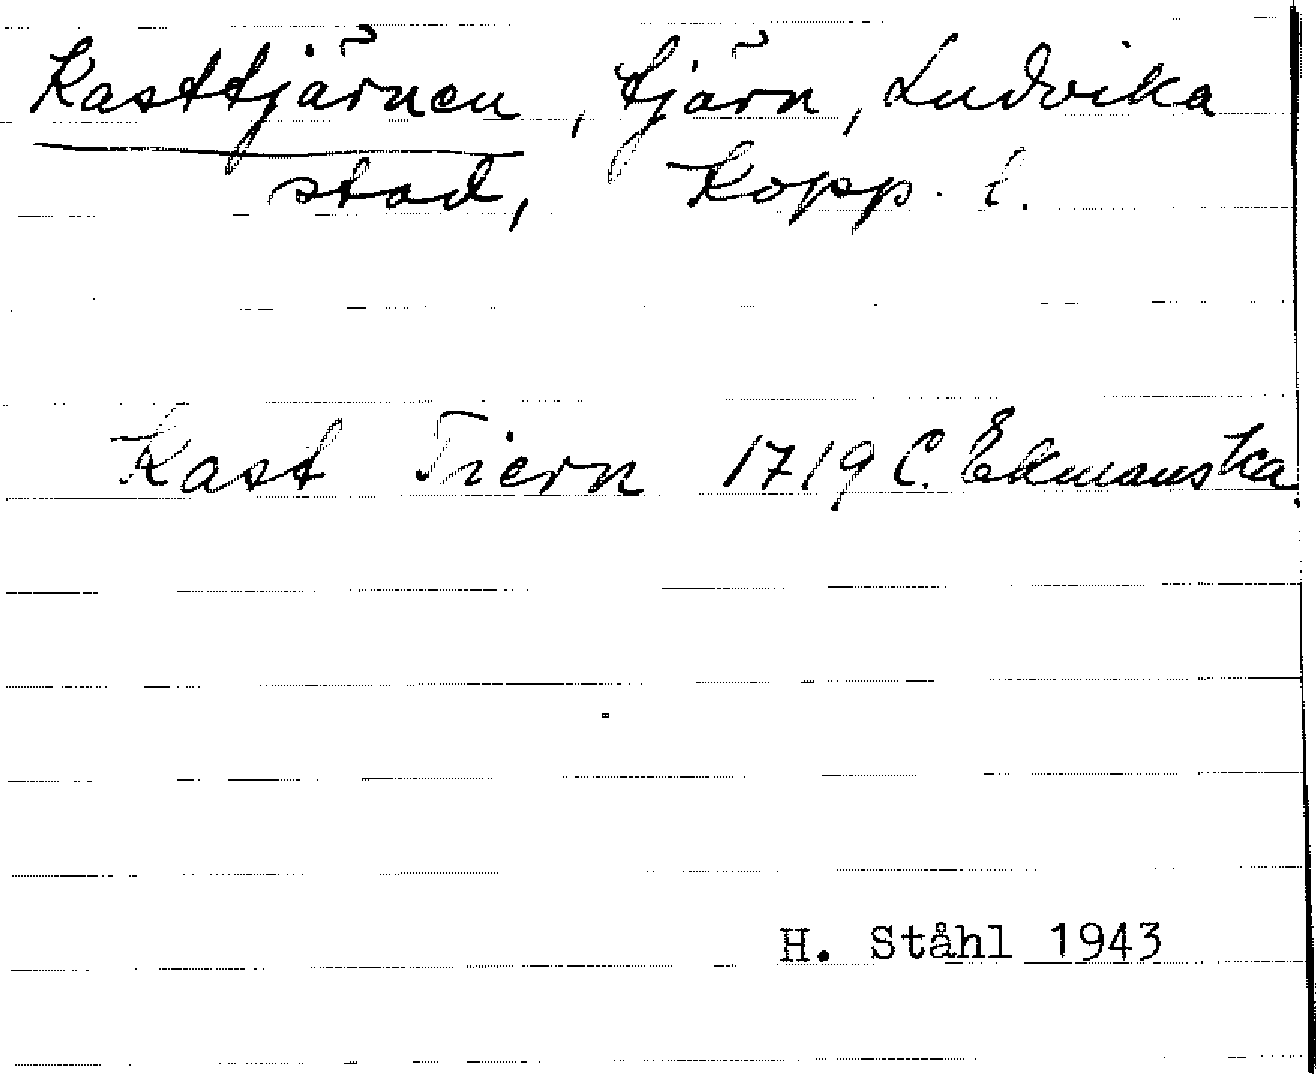 Kasttjärnen, tjärn, Ludvika
stad, Kopp. l.
Kast Tiern 1719 C. Ekmans ka
H. Ståhl 1943